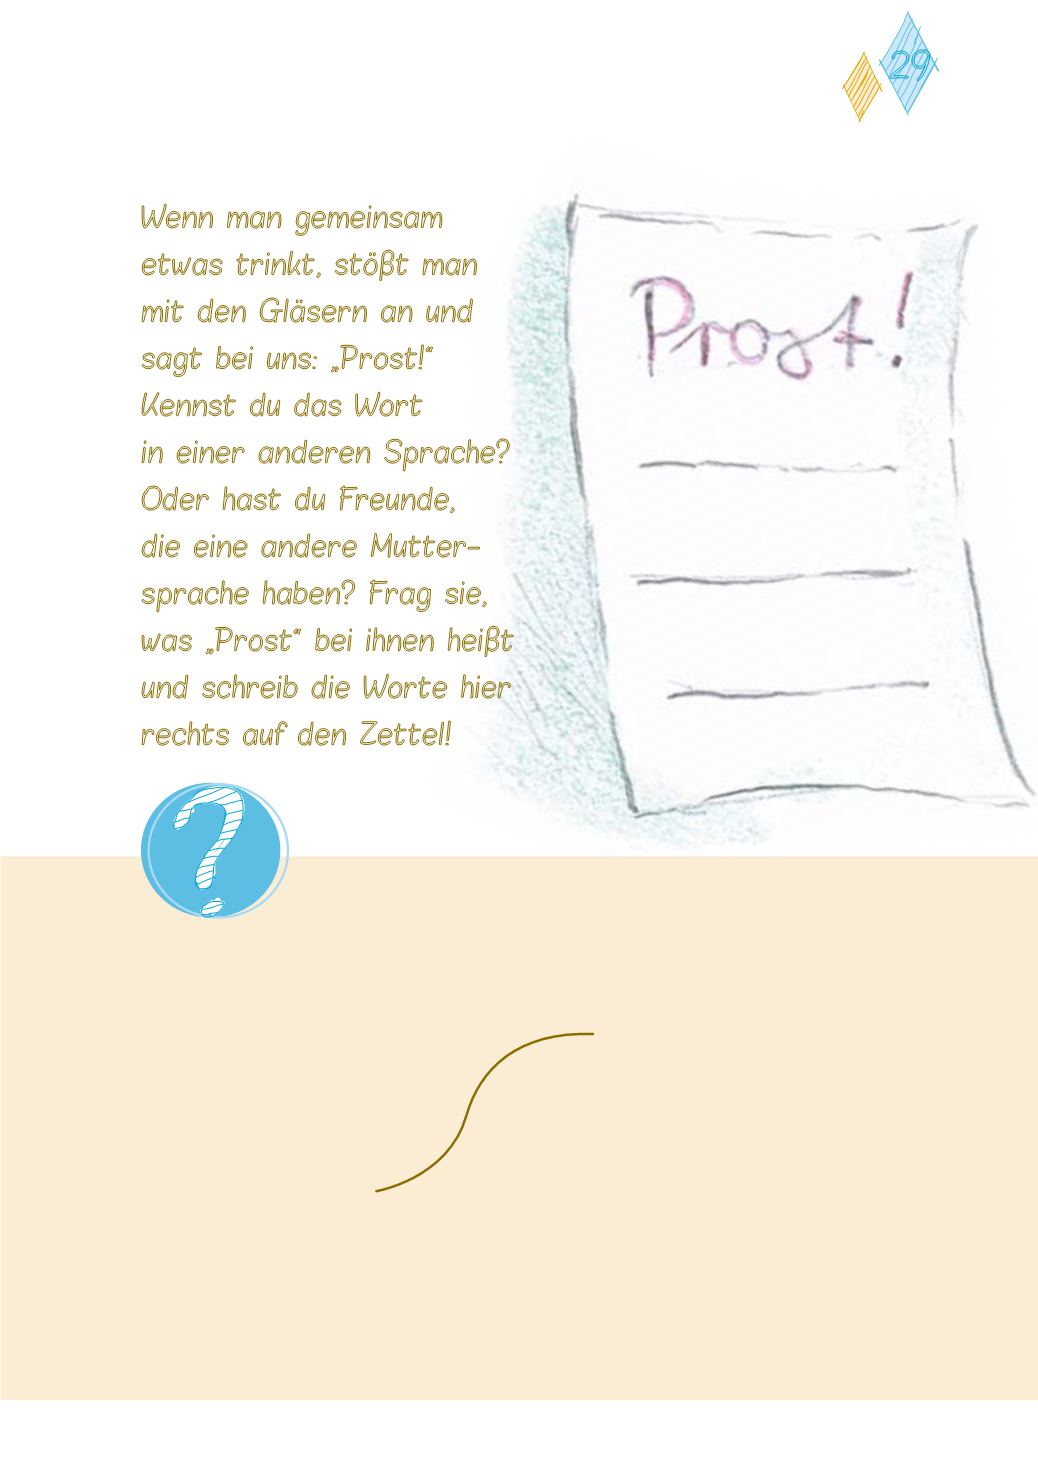 29
Wenn man gemeinsam
etwas trinkt, stößt man
mit den Gläsern an und
sagt bei uns: „Prost!“
Kennst du das Wort
in einer anderen Sprache?
Oder hast du Freunde,
die eine andere Mutter-
sprache haben? Frag sie,
was „Prost“ bei ihnen heißt
und schreib die Worte hier
rechts auf den Zettel!
Prost!
?